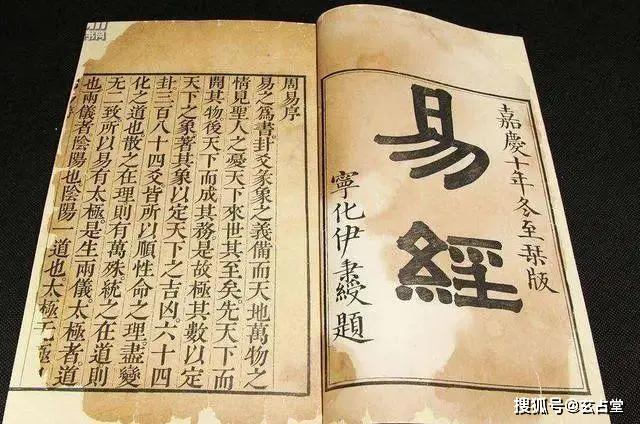 嘉慶十年冬至栞版
易經
寧化伊秉綬題
周易序
易之為書卦爻彖象之義備而天地萬物之
情見聖人之憂天下來世其至矣。先天下而
開其物後天下而成其務。是故極其數以定
天下之象著其象以定天下之吉凶。六十四
卦三百八十四爻皆所以順性命之理。盡變
化之道也散之在理則有萬殊。統之在道則
无二致所以易有太極。是生兩儀。太極者道
也兩儀者陰陽也陰陽一道也太極无極
搜狐号@玄占堂